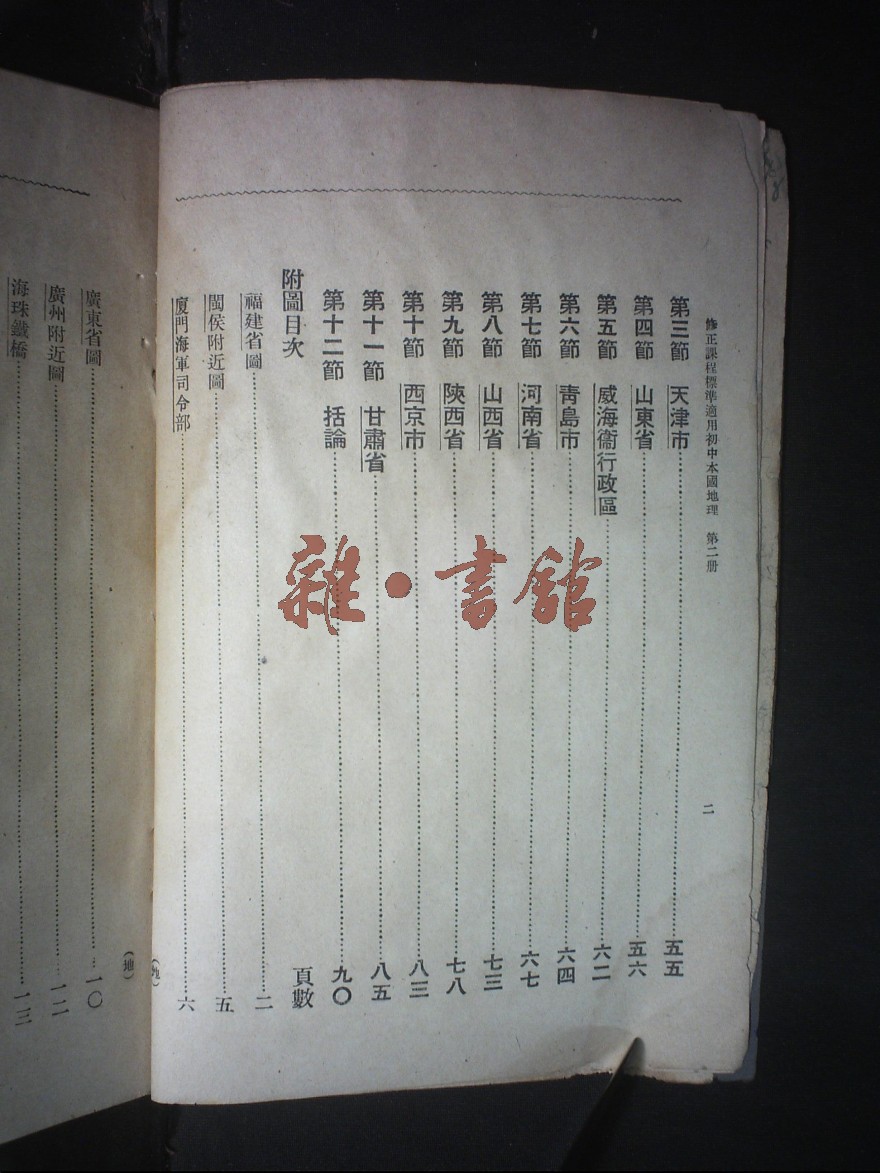 修正課程標準適用初中本國地理　第二册
二
第三節　天津市……五五
第四節　山東省……五六
第五節　威海衞行政區……六二
第六節　青島市……六四
第七節　河南省……六七
第八節　山西省……七三
第九節　陝西省……七八
第十節　西京市……八三
第十一節　甘肅省……八五
第十二節　括論……九〇
附圖目次　頁數
福建省圖……二
閩侯附近圖……五
廈門海軍司令部……六
（地）
廣東省圖……一〇
廣州附近圖……一二
海珠鐵橋……一三
雜·書館